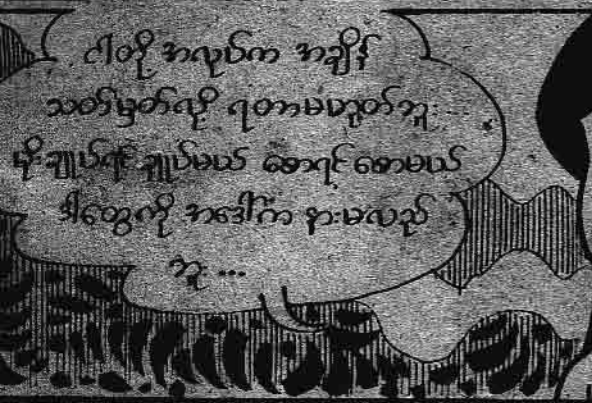 ငါတို့ အလုပ်က အချိန်
သတ်မှတ်လို့ ရတာမဟုတ်ဘူး...
မိုးချုပ်ရင် ချုပ်မယ် စောရင် စောမယ်
ဒါတွေကို အဒေါ်က နားမလည်
ဘူး ...